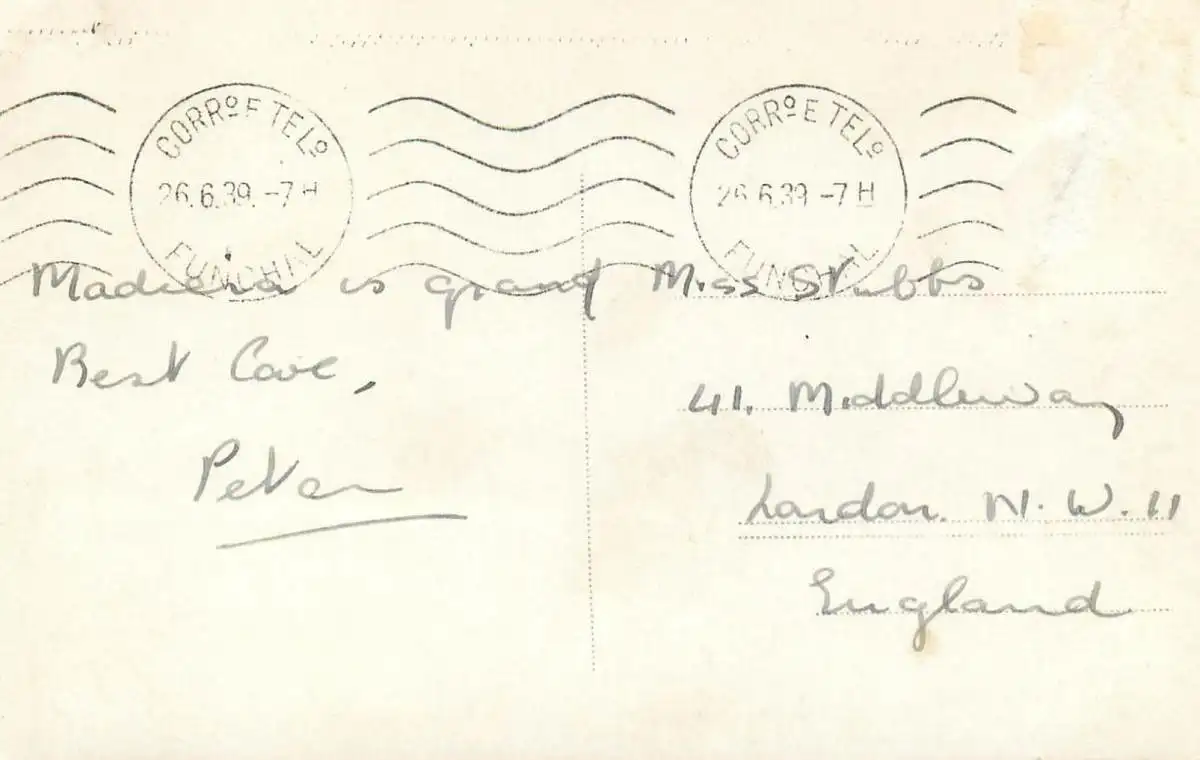 CORRº E TELº
26.6.39.-7H
FUNCHAL
CORRº E TELº
26.6.39-7H
FUNCHAL
Madeira is grand
Best Love,
Peter
Miss Stubbs
41. Middleway
London. N.W.11
England